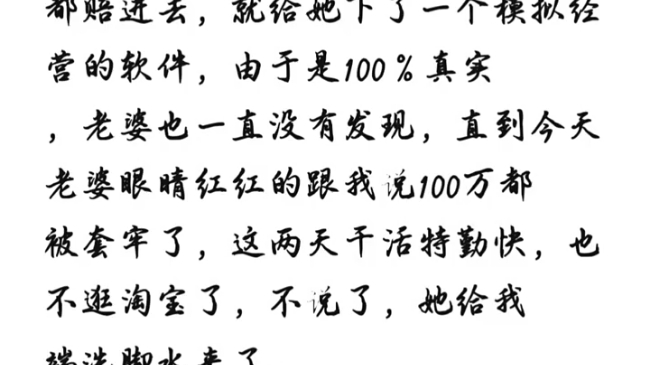 都赔进去，就给她下了一个模拟经
营的软件，由于是100％真实
，老婆也一直没有发现，直到今天
老婆眼睛红红的跟我说100万都
被套牢了，这两天干活特勤快，也
不逛淘宝了，不说了，她给我
端洗脚水来了